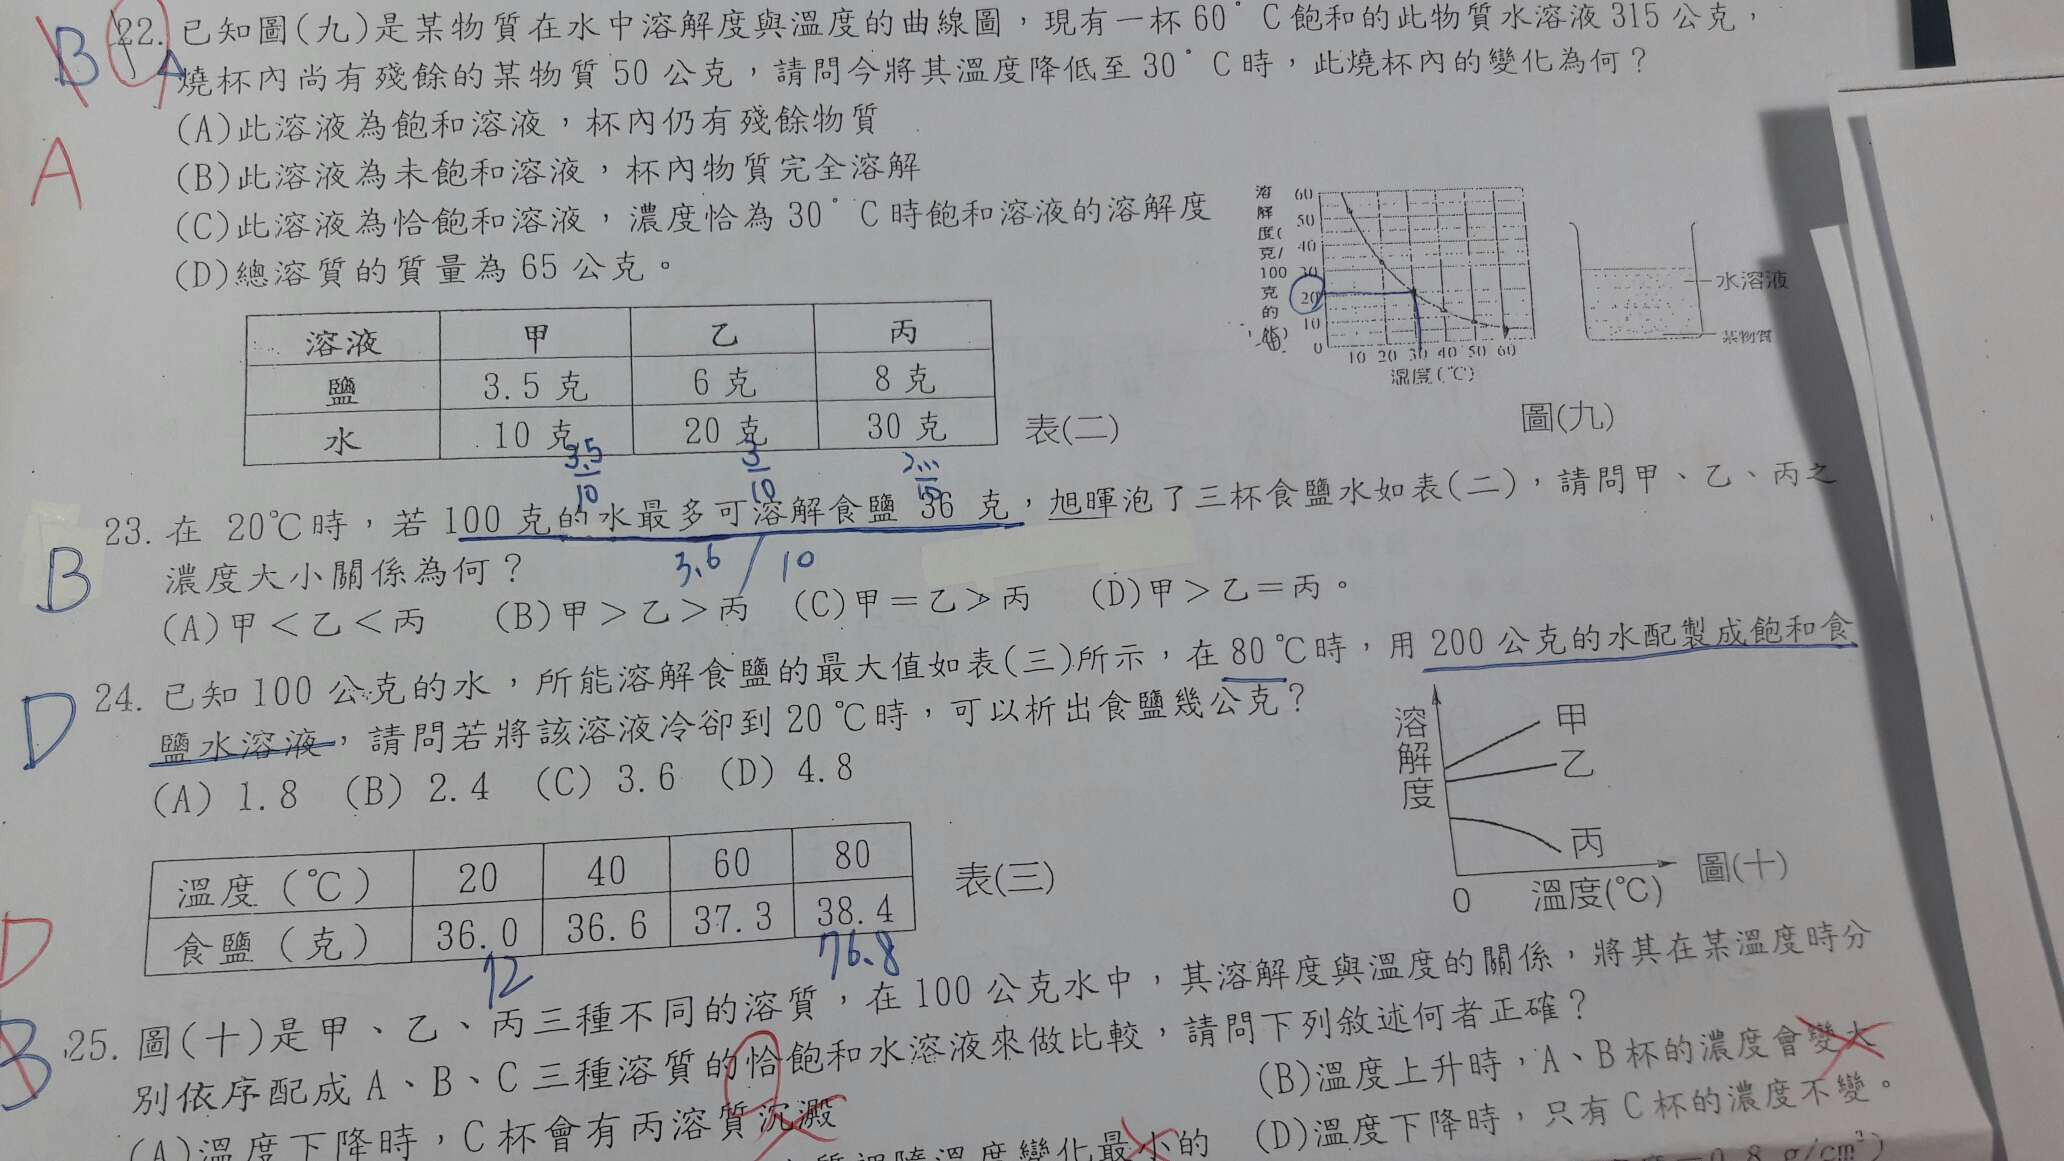 B
A
A
22. 已知圖(九)是某物質在水中溶解度與溫度的曲線圖，現有一杯60°C飽和的此物質水溶液315公克，
燒杯內尚有殘餘的某物質50公克，請問今將其溫度降低至30°C時，此燒杯內的變化為何？
(A)此溶液為飽和溶液，杯內仍有殘餘物質
(B)此溶液為未飽和溶液，杯內物質完全溶解
(C)此溶液為恰飽和溶液，濃度恰為30°C時飽和溶液的溶解度
(D)總溶質的質量為65公克。
溶解度(克/100克的
60
50
40
30
20
10
0
10 20 30 40 50 60
溫度(℃)
水溶液
某物質
圖(九)
溶液 甲 乙 丙
鹽 3.5克 6克 8克
水 10克 20克 30克
表(二)
3.5/10 3/10
B
23. 在 20℃時，若100克的水最多可溶解食鹽 36 克，旭暉泡了三杯食鹽水如表(二)，請問甲、乙、丙之
濃度大小關係為何？
3.6/10
(A)甲＜乙＜丙 (B)甲＞乙＞丙 (C)甲＝乙＞丙 (D)甲＞乙＝丙。
D
24. 已知100公克的水，所能溶解食鹽的最大值如表(三)所示，在80℃時，用200公克的水配製成飽和食
鹽水溶液，請問若將該溶液冷卻到20℃時，可以析出食鹽幾公克？
(A) 1.8 (B) 2.4 (C) 3.6 (D) 4.8
溫度(℃) 20 40 60 80
食鹽(克) 36.0 36.6 37.3 38.4
表(三)
72 76.8
溶解度
甲
乙
丙
0 溫度(℃)
圖(十)
D
B
25. 圖(十)是甲、乙、丙三種不同的溶質，在100公克水中，其溶解度與溫度的關係，將其在某溫度時分
別依序配成A、B、C三種溶質的恰飽和水溶液來做比較，請問下列敘述何者正確？
(A)溫度下降時，C杯會有丙溶質沉澱
(B)溫度上升時，A、B杯的濃度會變大
質視隨溫度變化最小的
(D)溫度下降時，只有C杯的濃度不變。
0.8 g/cm³)